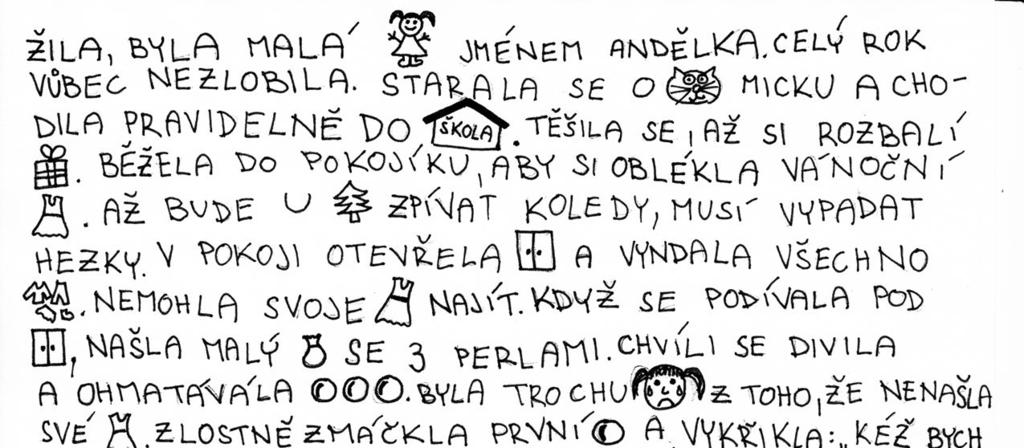 ŽILA, BYLA MALÁ JMÉNEM ANDĚLKA. CELÝ ROK
VŮBEC NEZLOBILA. STARALA SE O MICKU A CHO-
DILA PRAVIDELNĚ DO ŠKOLA. TĚŠILA SE, AŽ SI ROZBALÍ
. BĚŽELA DO POKOJÍKU, ABY SI OBLÉKLA VÁNOČNÍ
. AŽ BUDE U ZPÍVAT KOLEDY, MUSÍ VYPADAT
HEZKY. V POKOJI OTEVŘELA A VYNDALA VŠECHNO
. NEMOHLA SVOJE NAJÍT. KDYŽ SE PODÍVALA POD
, NAŠLA MALÝ SE 3 PERLAMI. CHVÍLI SE DIVILA
A OHMATÁVÁLA . BYLA TROCHU Z TOHO, ŽE NENAŠLA
SVÉ . ZLOSTNĚ ZMÁČKLA PRVNÍ A VYKŘIKLA: „KÉŽ BYCH